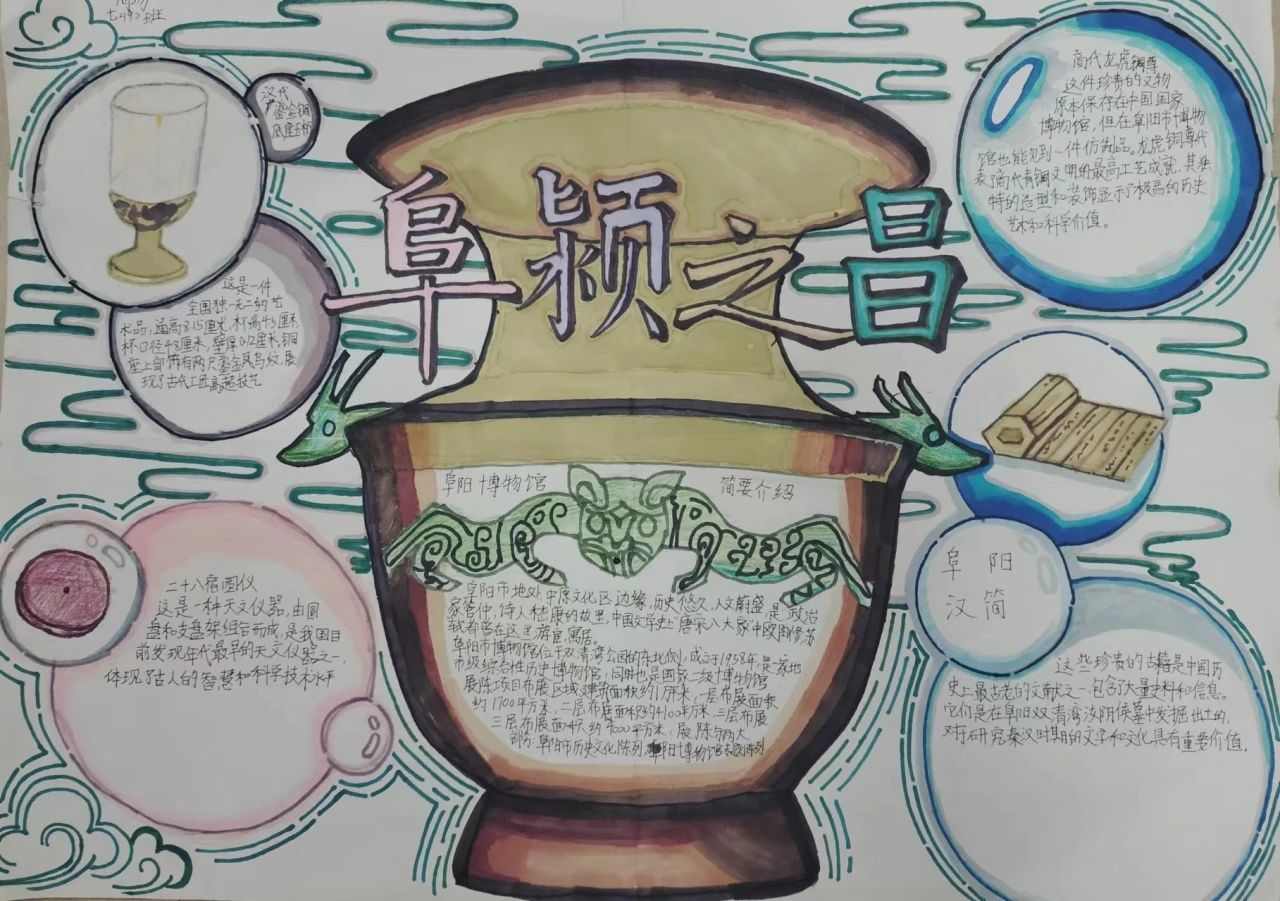 七(4)班
阜颍之昌
汉代
鎏金铜
底座玉杯
这是一件
全国独一无二的艺
术品,通高8.15厘米,杯高4.5厘米
杯口径4.8厘米,壁厚0.12厘米,铜
座上部饰有两只鎏金凤鸟纹,展
现了古代工匠高超技艺
二十八宿圆仪
这是一种天文仪器,由圆
盘和支盘架组合而成,是我国目
前发现年代最早的天文仪器之一,
体现了古人的智慧和科学技术水平
阜阳博物馆 简要介绍
阜阳市地处中原文化区边缘,历史悠久,人文蔚盛是政治
家管仲,诗人嵇康的故里,中国文学史上"唐宋八大家"中欧阳修苏
轼都曾在这里游宦,寓居。
阜阳市博物馆位于双清湾公园的东北侧,成立于1958年,是一家地
市级综合性历史博物馆,同时也是国家二级博物馆
展陈项目布展区域建筑面积约1万平米,一层布展面积
约1700平方米,二层布展面积约4100平方米,三层布展
三层布展面积约4000平方米,展陈分两大
部分:阜阳市历史文化陈列 阜阳博物馆专题陈列
商代龙虎铜尊
这件珍贵的文物
原本保存在中国国家
博物馆,但在阜阳市博物
馆也能见到一件仿制品。龙虎铜尊代
表了商代青铜文明的最高工艺成就,其独
特的造型和装饰显示了极高的历史
艺术和科学价值。
阜阳
汉简
这些珍贵的古籍是中国历
史上最古老的文献之一,包含了大量史料和信息。
它们是在阜阳双清湾汝阴侯墓中发掘出土的,
对于研究秦汉时期的文字和文化具有重要价值,